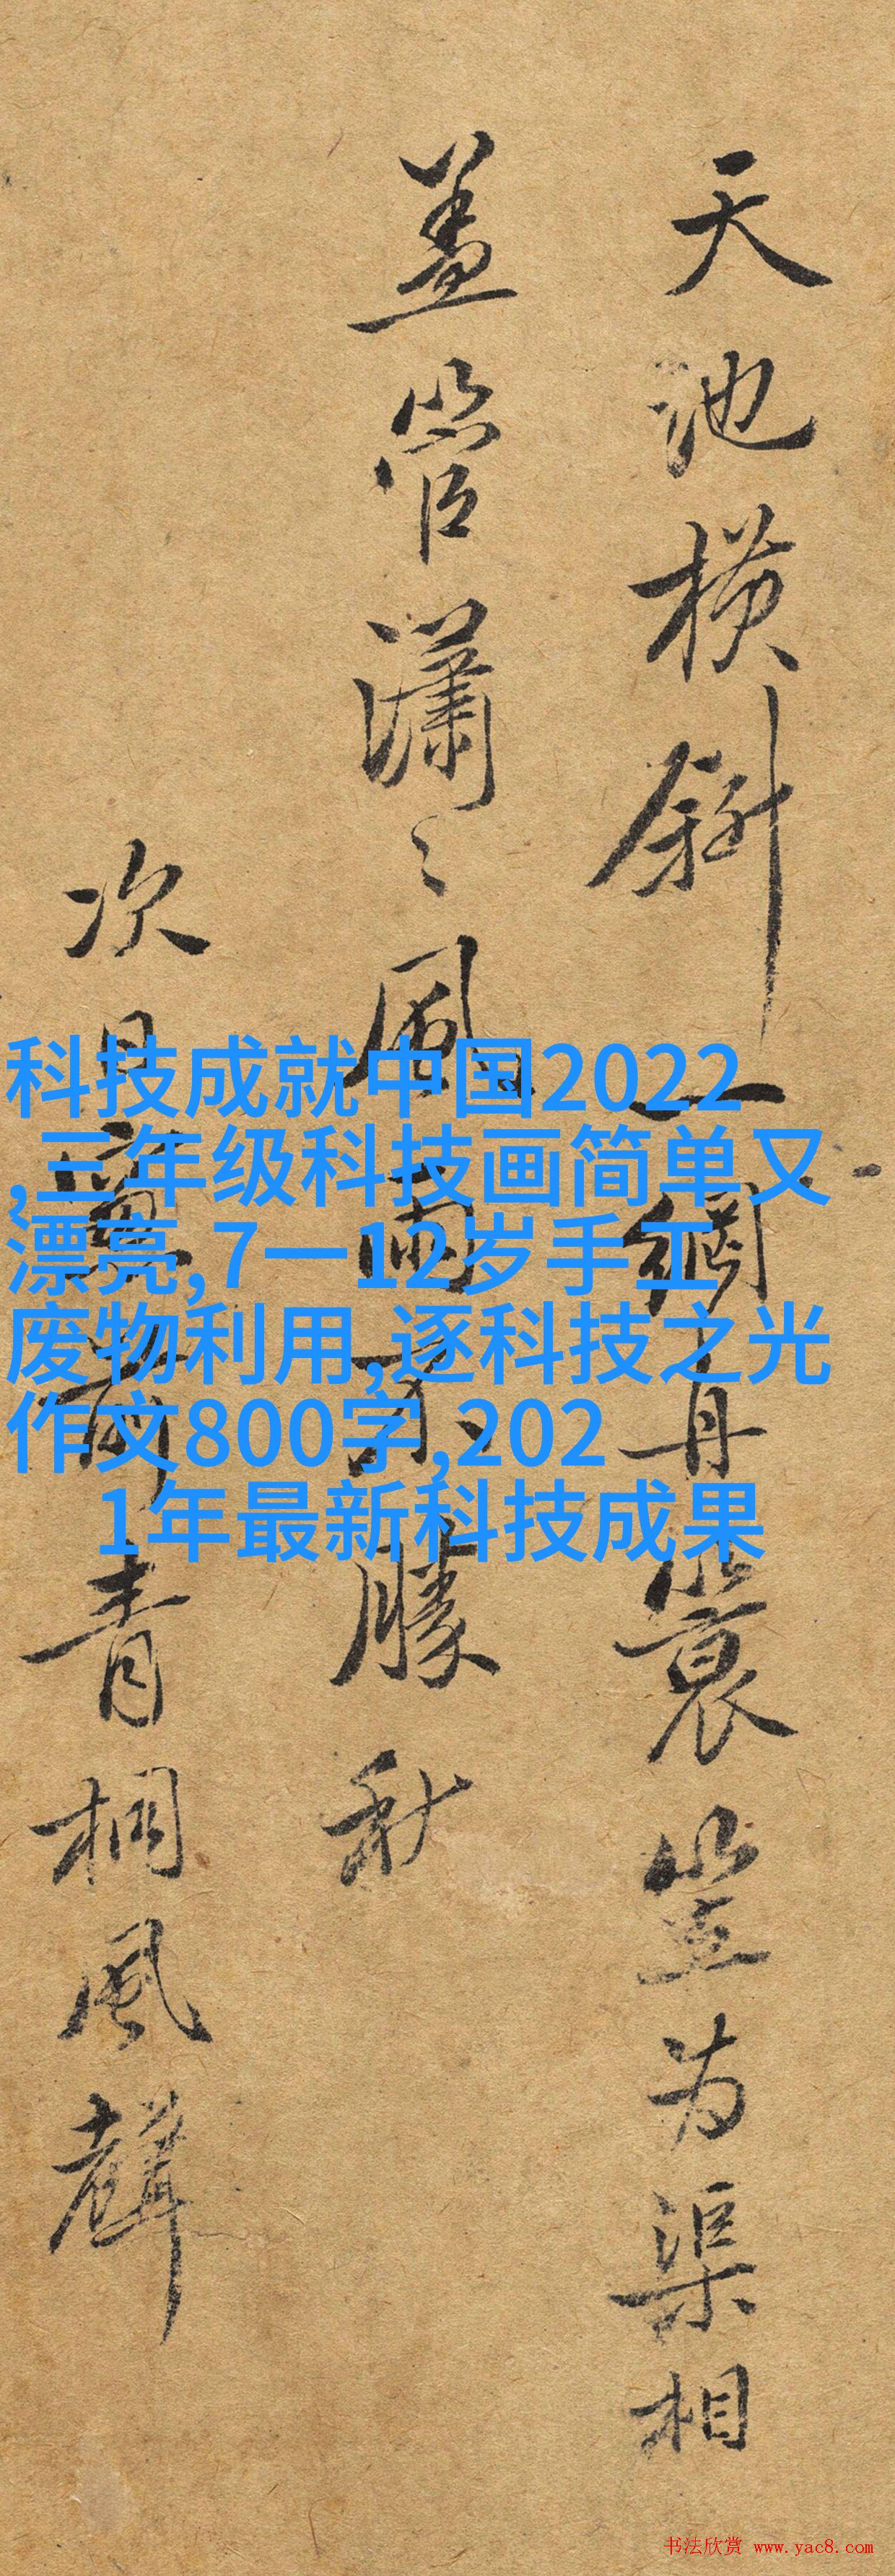 天池横斜一網舟簑笠为渠相
盖管瀟〻風雨不勝秋
次日窗前青桐風聲
科技成就中国2022
,三年级科技画简单又
漂亮,7一12岁手工
废物利用,逐科技之光
作文800字,202
1年最新科技成果
书法欣赏 www.yac8.com